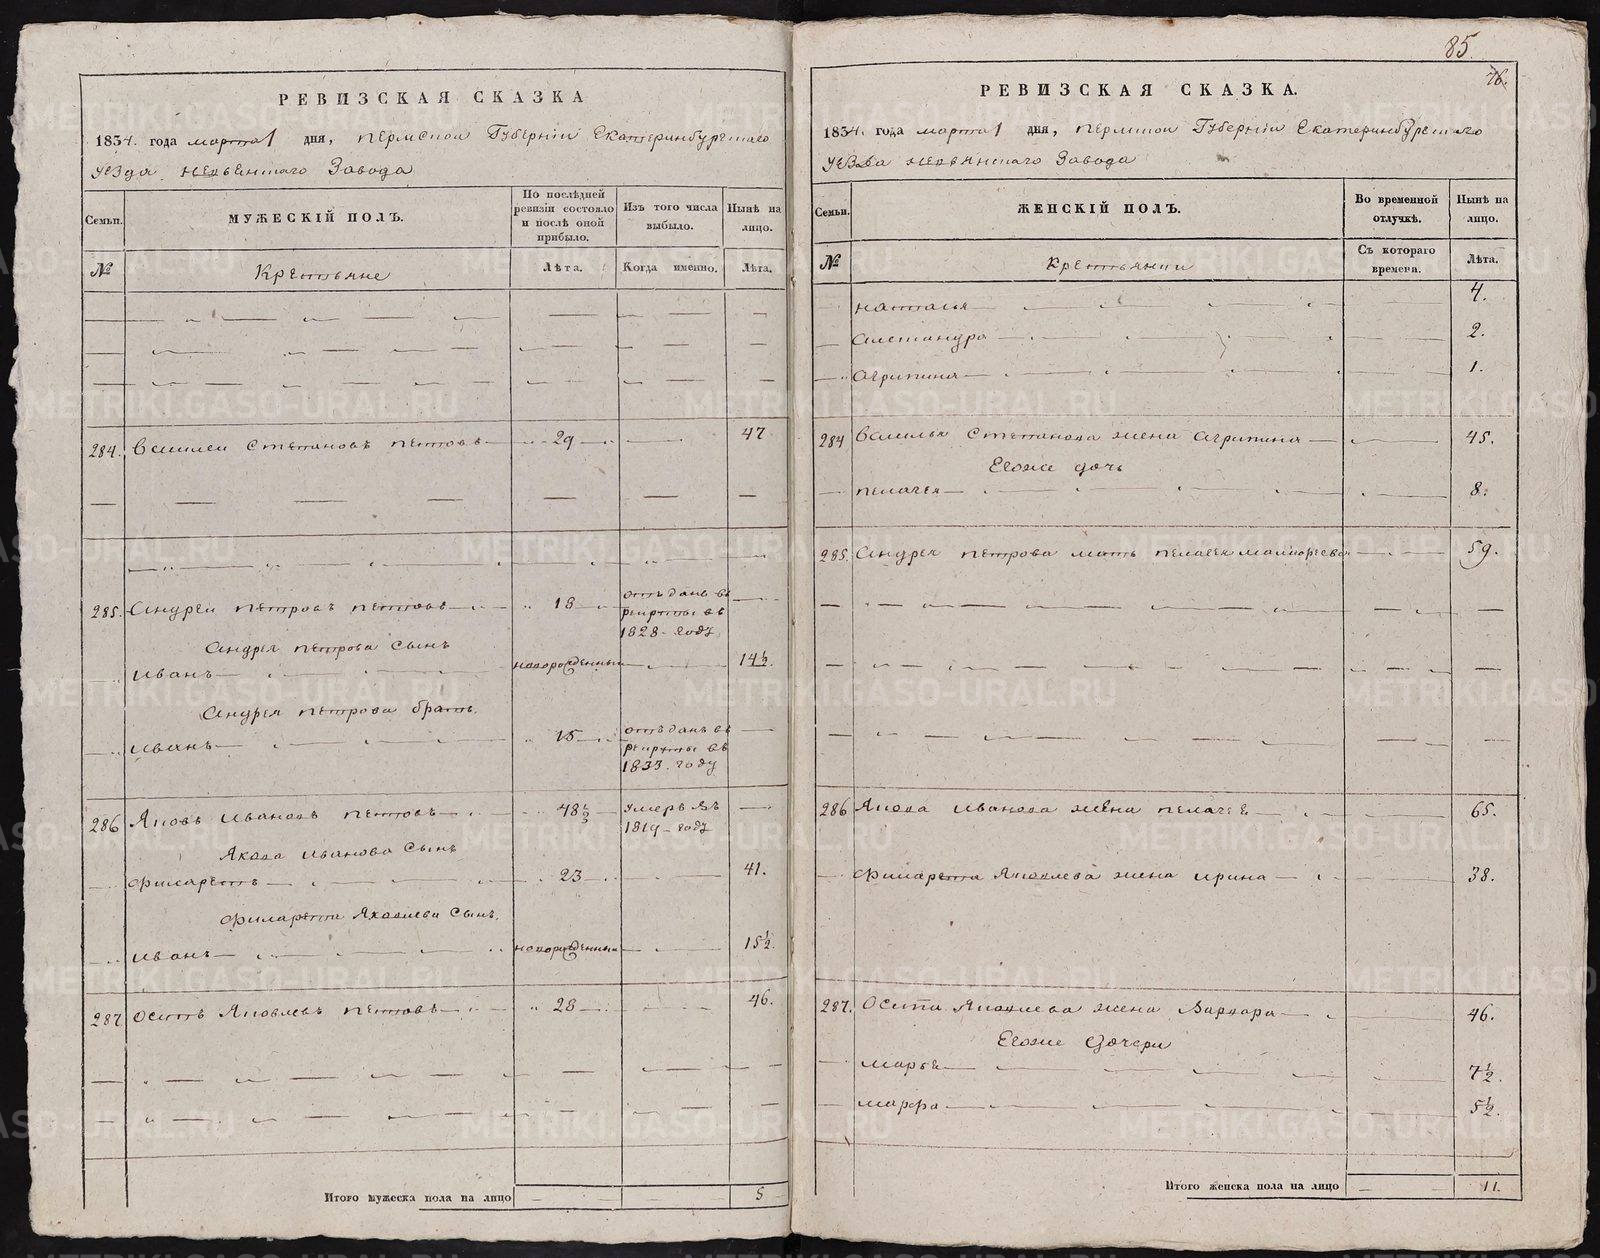 85
76.
РЕВИЗСКАЯ СКАЗКА
1834. года марта 1 дня, Пермской Губернии Екатеринбургскаго
уезда Невьянскаго Завода
Семьи.
МУЖЕСКІЙ ПОЛЪ.
По послѣдней ревизіи состояло и послѣ оной прибыло.
Изъ того числа выбыло.
Нынѣ на лицо.
№
Крестьяне
Лѣта.
Когда именно.
Лѣта.
284. Василей Степановъ Петровъ 29 47
285. Андрей Петровъ Петровъ 18 отъданъ въ
рекруты въ
1828 году
Андрея Петрова сынъ
Иванъ новорожденный 14½.
Андрея Петрова братъ.
Иванъ 15 отъданъ въ
рекруты въ
1833. году
286 Яковъ Ивановъ Петровъ 48½ умеръ въ
1819 году
Якова Иванова сынъ
Филаретъ 23 41.
Филарета Яковлева сынъ.
Иванъ новорожденный 15½.
287 Осипъ Яковлевъ Петровъ 28 46.
Итого мужеска пола на лицо 5
РЕВИЗСКАЯ СКАЗКА.
1834. года марта 1 дня, Пермской Губернии Екатеринбургскаго
уезда Невьянскаго Завода
Семьи.
ЖЕНСКІЙ ПОЛЪ.
Во временной отлучкѣ.
Нынѣ на лицо.
№
Крестьянки
Съ котораго времени.
Лѣта.
Наталья 4.
Александра 2.
Агрипина 1.
284 Василья Степанова жена Агрипина 45.
Егоже дочь
Пелагея 8.
285. Андрея Петрова мать Пелагея 59.
286 Якова Иванова жена Пелагея 65.
Филарета Яковлева жена Ирина 38.
287. Осипа Яковлева жена Варвара 46.
Егоже дочери
Марья 7½
Марфа 5½
Итого женска пола на лицо 11.
METRIKI.GASO-URAL.RU